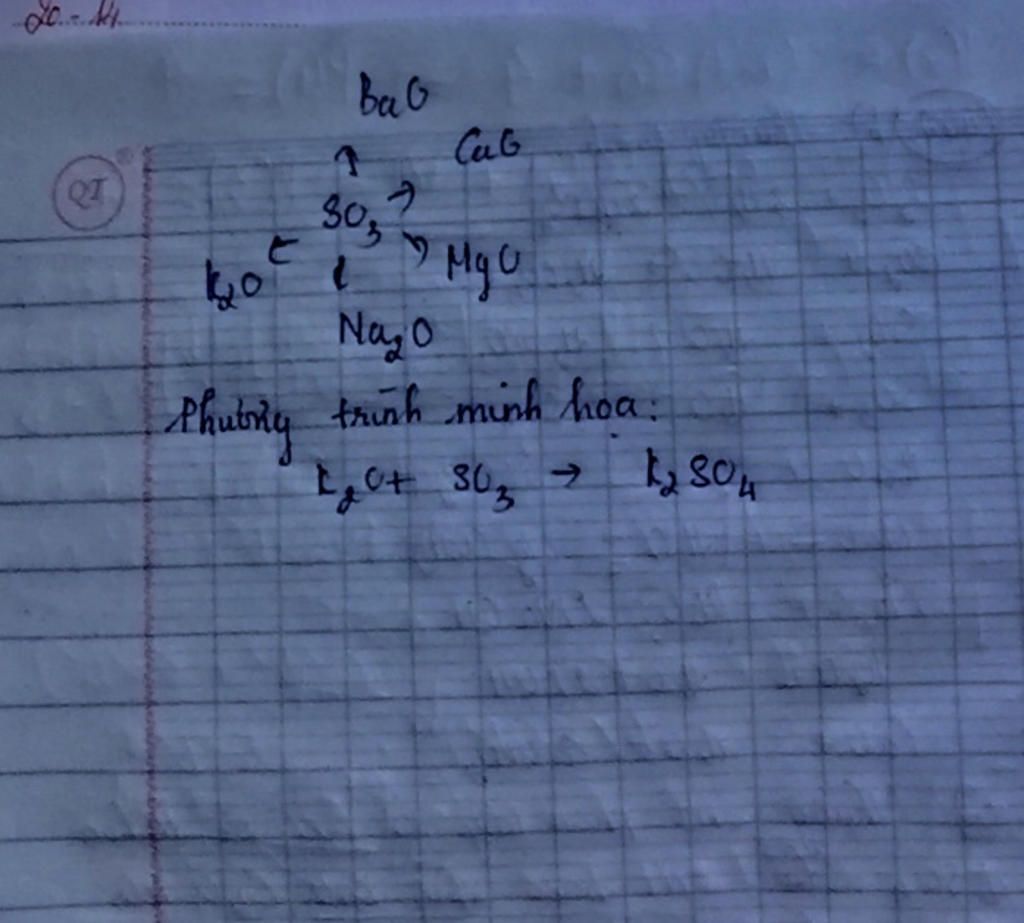 20 - 11
BaO
CaO
SO3
K2O
MgO
Na2O
Phương trình minh họa:
K2O + SO3 → K2SO4